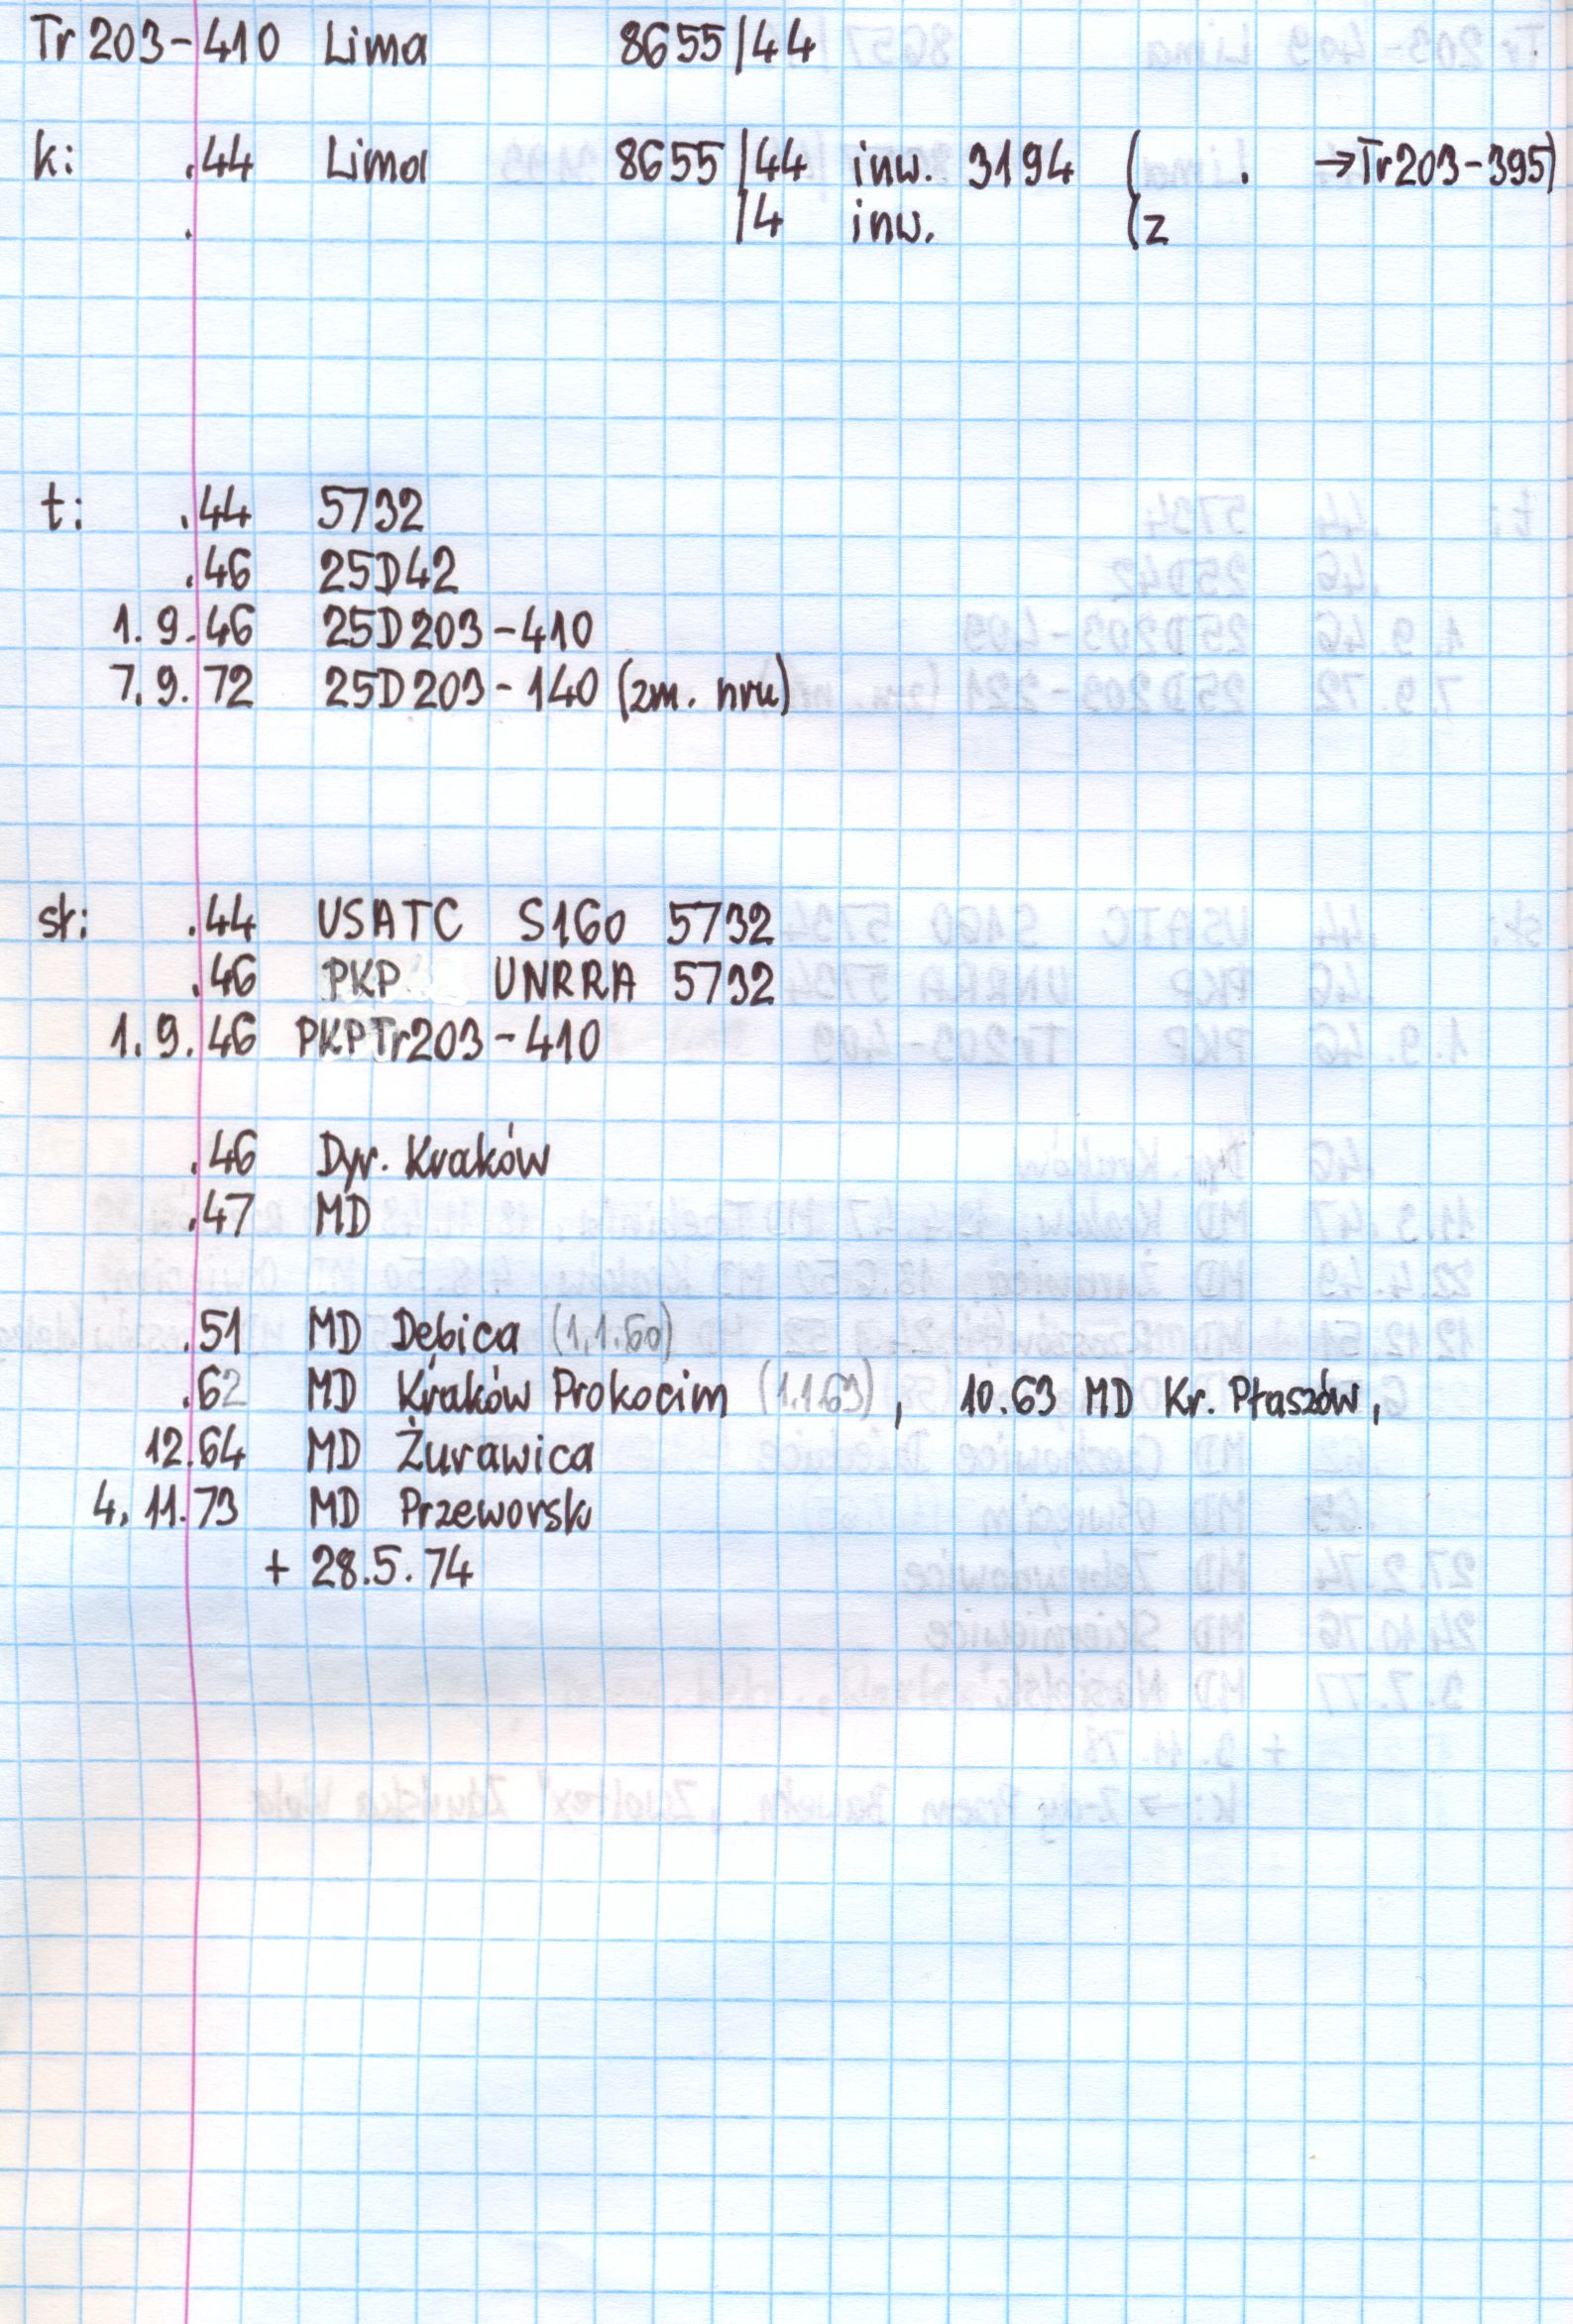 Tr 203-410 Lima 8655/44
k: .44 Lima 8655/44 inw. 3194 ( . →Tr203-395)
. /4 inw. (z
t: .44 5732
.46 25D42
1.9.46 25D203-410
7.9.72 25D203-140 (zm. nru)
sł: .44 USATC S160 5732
.46 PKP UNRRA 5732
1.9.46 PKP Tr203-410
.46 Dyr. Kraków
.47 MD
.51 MD Dębica (1.1.60)
.62 MD Kraków Prokocim (1.1.63), 10.63 MD Kr. Płaszów,
12.64 MD Żurawica
4.11.73 MD Przeworsk
+ 28.5.74